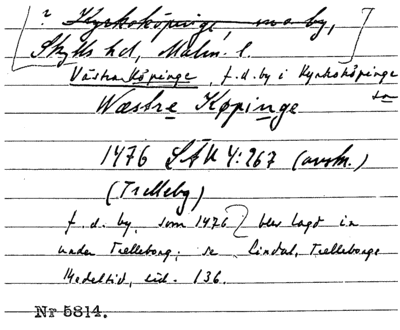 [? Kyrkoköpinge, now by,
Skytts hd, Malm. l.]
Västra Köpinge, f.d. by i Kyrkoköpinge
sn
Wæstre Køpinge
1476 LÅU 4:267 (avskr.)
(Trelleby)
f. d. by, som 1476 blev lagd in
under Trelleborg; se Lindal, Trelleborgs
Medeltid, sid. 136.
Nr 5814.